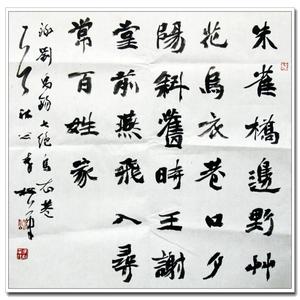 朱雀橋邊野艸
花烏衣巷口夕
陽斜舊時王謝
堂前燕飛入尋
常百姓家
劉禹錫七絕烏衣巷